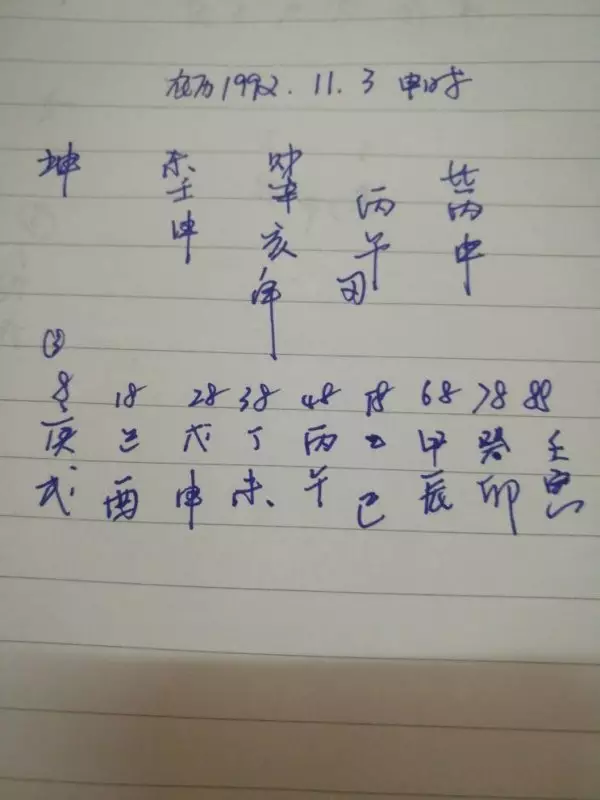 农历1992.11.3 申时
坤 杀 财 比
壬 辛 丙 丙
申 亥 午 申
③
8 18 28 38 48 58 68 78 88
庚 己 戊 丁 丙 乙 甲 癸 壬
戌 酉 申 未 午 巳 辰 卯 寅